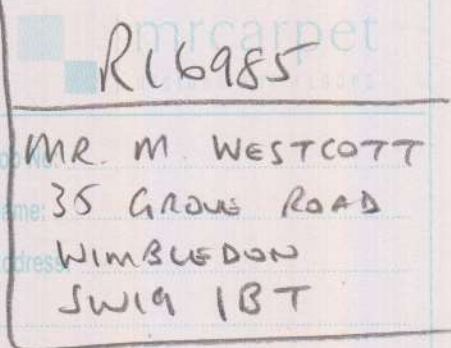 mrcarpet
R16985
MR. M WESTCOTT
35 GROVE ROAD
WIMBLEDON
SW19 1BT